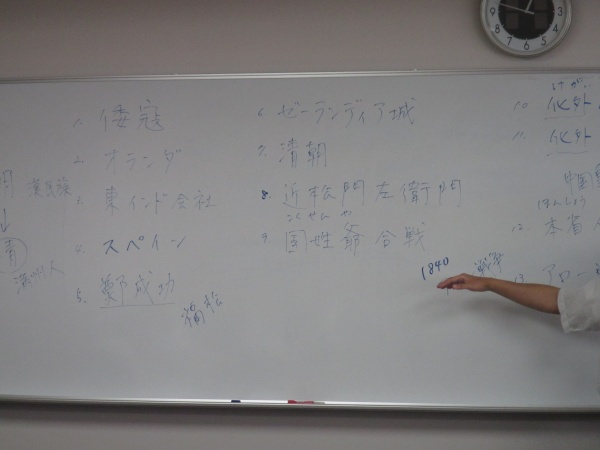 1. 倭寇
2. オランダ
漢民族
3. 東インド会社
↓
清
4. スペイン
満州人
5. 鄭成功
福松
6. ゼーランディア城
7. 清朝
8. 近松門左衛門
こくせんや
9. 国姓爺合戦
1840
戦争
けがい
10. 化外
11. 化外
ほんしょう
12. 本省人
13. アロー